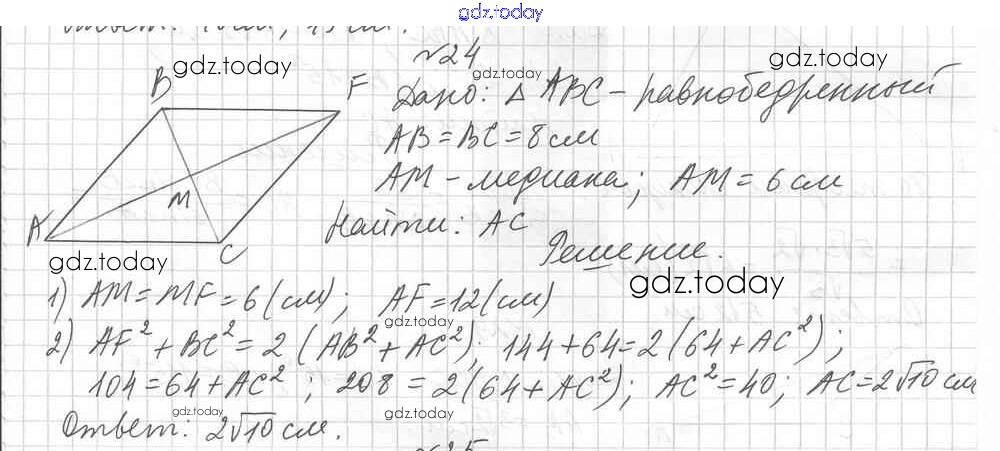 gdz.today
Ответ:
№24
gdz.today
gdz.today
gdz.today
B
F
A
M
C
Дано: △ ABC – равнобедренный
AB = BC = 8 см
AM – медиана; AM = 6 см
Найти: AC
Решение.
gdz.today
gdz.today
1) AM = MF = 6 (см); AF = 12 (см)
gdz.today
2) AF² + BC² = 2 (AB² + AC²); 144 + 64 = 2 (64 + AC²);
104 = 64 + AC²; 208 = 2 (64 + AC²); AC² = 40; AC = 2√10 см
gdz.today
gdz.today
Ответ: 2√10 см.